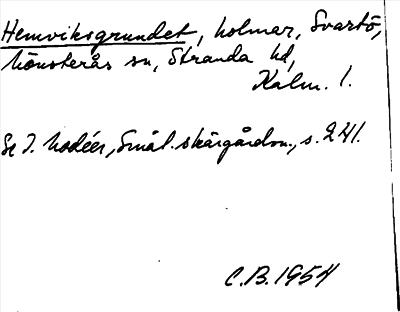 Hemviksgrundet, holmar, Svartö,
Mönsterås sn, Stranda hd,
Kalm. l.
Se I. Modéer, Smål. skärgårdsn., s. 241.
C.B. 1954